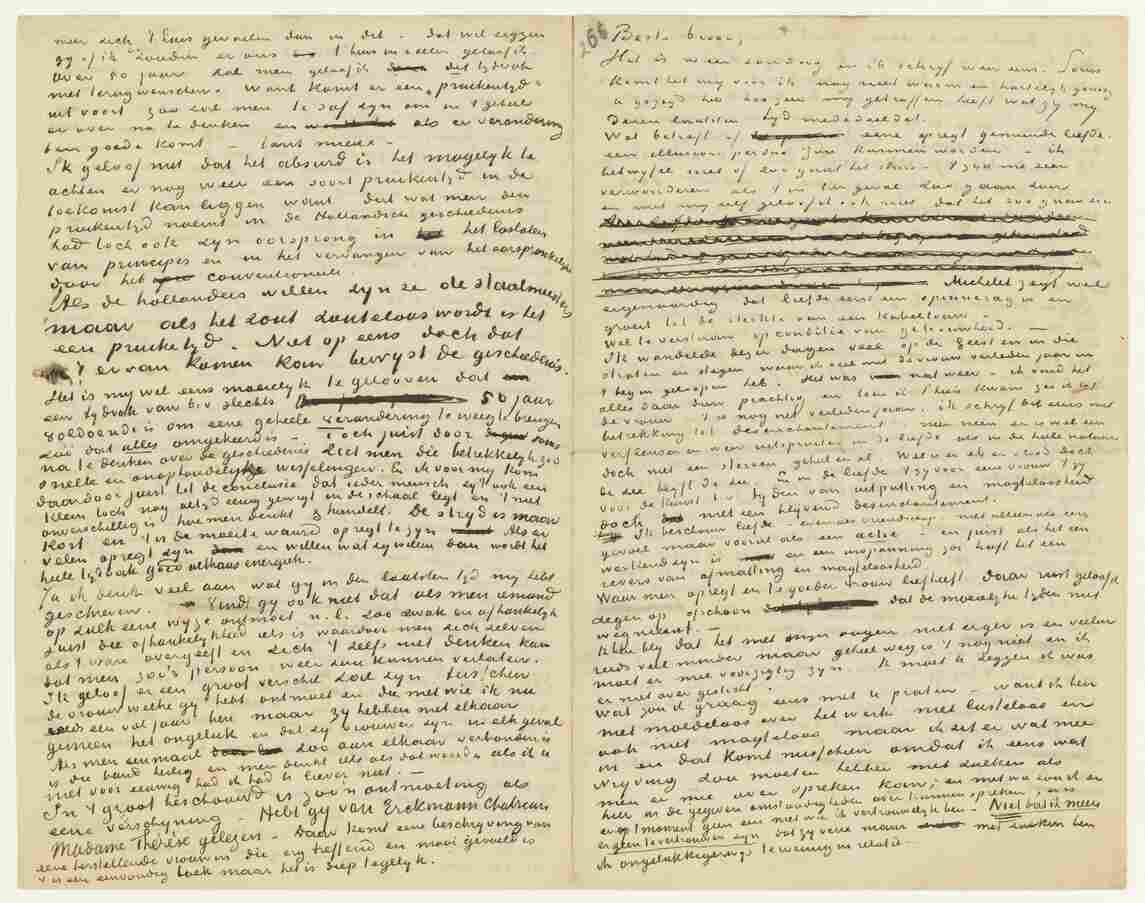 men zich 't huis gevoelen dan in dit – dat wil zeggen
gy of ik zouden er ons 't huis in voelen geloof ik.
over 50 jaar zal men geloof ik dit tydvak
niet terugwenschen. Want komt er een „pruikentyd”
uit voort zoo zal men te daf zyn om in 't geheel
er over na te denken en als er verandering
ten goede komt – tant mieux.
Ik geloof niet dat het absurd is het mogelyk te
achten er nog weer een soort pruikentyd in de
toekomst kan liggen want dat wat men den
pruikentyd noemt in de Hollandsche geschiedenis
had toch ook zyn oorsprong in het loslaten
van principes en in het vervangen van het oorspronkelyke
door het conventioneele.
Als de hollanders willen zyn ze de staalmeesters
maar als het zout zouteloos wordt is het
een pruiketyd. Niet op eens doch dat
't er van komen kan bewyst de geschiedenis.
Het is my wel eens moeielyk te gelooven dat
een tydvak van b.v. slechts 50 jaar
voldoende is om eene geheele verandering te weeg te brengen
zóó dat alles omgekeerd is. – Toch juist door soms
na te denken over de geschiedenis ziet men die betrekkelyk zoo
snelle en onophoudelyke wisselingen. En ik voor my kom
daardoor juist tot de conclusie dat ieder mensch zy 't ook een
klein toch nog altyd eenig gewigt in de schaal legt en 't niet
onverschillig is hoe men denkt & handelt. De stryd is maar
kort en 't is de moeite waard opregt te zyn Als er
velen opregt zyn en willen wat zy willen dan wordt het
heele tydvak goed althans energiek.
Ja ik denk veel aan wat gy in den laatsten tyd my hebt
geschreven. – Vindt gy ook niet dat als men iemand
op zulk eene wyze ontmoet n.l. zoo zwak en afhankelyk
Juist die afhankelykheid iets is waardoor men zich zelven
als 't ware overgeeft en zich 't zelfs niet denken kan
dat men zoo'n persoon weer zou kunnen verlaten.
Ik geloof er een groot verschil zal zyn tusschen
de vrouw welke gy hebt ontmoet en die met wie ik nu
reeds een vol jaar ben maar zy hebben met elkaar
gemeen het ongeluk en dat zy vrouwen zyn in elk geval
Als men eenmaal zoo aan elkaar verbonden is
is die band heilig en men denkt iets als dat werd als ik U
niet voor eeuwig had ik had U liever niet. –
In 't groot beschouwd is zoo'n ontmoeting als
eene verschyning. – Hebt gy van Erckmann Chatrian
Madame Thérèse gelezen – Daar komt eene beschryving van
eene herstellende vrouw in die erg treffend en mooi gevoeld is
't is een eenvoudig boek maar het is diep tegelyk.
266
Beste broer,
Het is weer zondag en ik schryf weer eens. Soms
komt het my voor ik nog niet warm en hartelyk genoeg
u gezegd heb hoe zeer my getroffen heeft wat gy my
Dezen laatsten tyd mededeeldet.
Wat betreft of eene opregt gemeende liefde
een illusion perdue zou kunnen worden – ik
betwyfel niet of zoo gaat het soms. 't zou me zeer
verwonderen als 't in Uw geval zoo gaan zou
en met my zelf geloof ik ook niet dat het zoo gaan zal
Michelet zegt wel
eigenaardig dat liefde eerst een spinnerag is en
groeit tot de sterkte van een kabeltouw. –
wel te verstaan op conditie van getrouwheid. –
Ik wandelde dezer dagen veel op de Geest en in die
straten en stegen waar ik veel met de vrouw verleden jaar in
't begin geloopen heb. Het was nat weer – ik vond het
alles daar dan prachtig en toen ik t'huis kwam zei ik tot
de vrouw 't is nog net verleden jaar. ik schryf dit eens met
betrekking tot desenchantement – neen neen er is wel een
verflenzen en weer uitspruiten in de liefde als in de heele natuur
doch niet een sterven geheel en al. Wel is er eb en vloed doch
de zee blyft de zee. En in de liefde 't zy voor eene vrouw 't zy
voor de kunst b.v. tyden van uitputting en magteloosheid
doch niet een blyvend desenchantement.
Ik beschouw liefde – evenals vriendschap – niet alleen als een
gevoel maar vooral als een actie – en juist als het een
werkend zyn is en een inspanning zoo heeft het een
revers van afmatting en magteloosheid.
Waar men opregt en te goeder trouw liefheeft daar rust geloof ik
zegen op ofschoon dat de moeielyke tyden niet
wegneemt. –
Ik ben bly dat het met myn oogen niet erger is en veeleer
reeds veel minder maar geheel weg is 't nog niet en ik
moet er mee voorzigtig zyn. Ik moet U zeggen ik was
er niet over gesticht.
Wat zou ik graag eens met U praten – want ik ben
niet moedeloos over het werk niet lusteloos en
ook niet magteloos maar ik zit er wat mee
in en dat komt misschien omdat ik eens wat
wryving zou moeten hebben met zulken als
men er mee over spreken kan; en met wie zou ik er
hier in de gegeven omstandigheden over kunnen spreken; er is
er op 't moment geen een met wie ik vertrouwelyk ben – Niet dat ik meen
er geen te vertrouwen zyn dat zy verre maar met zoodanigen ben
ik ongelukkigerwys te weinig in relatie –